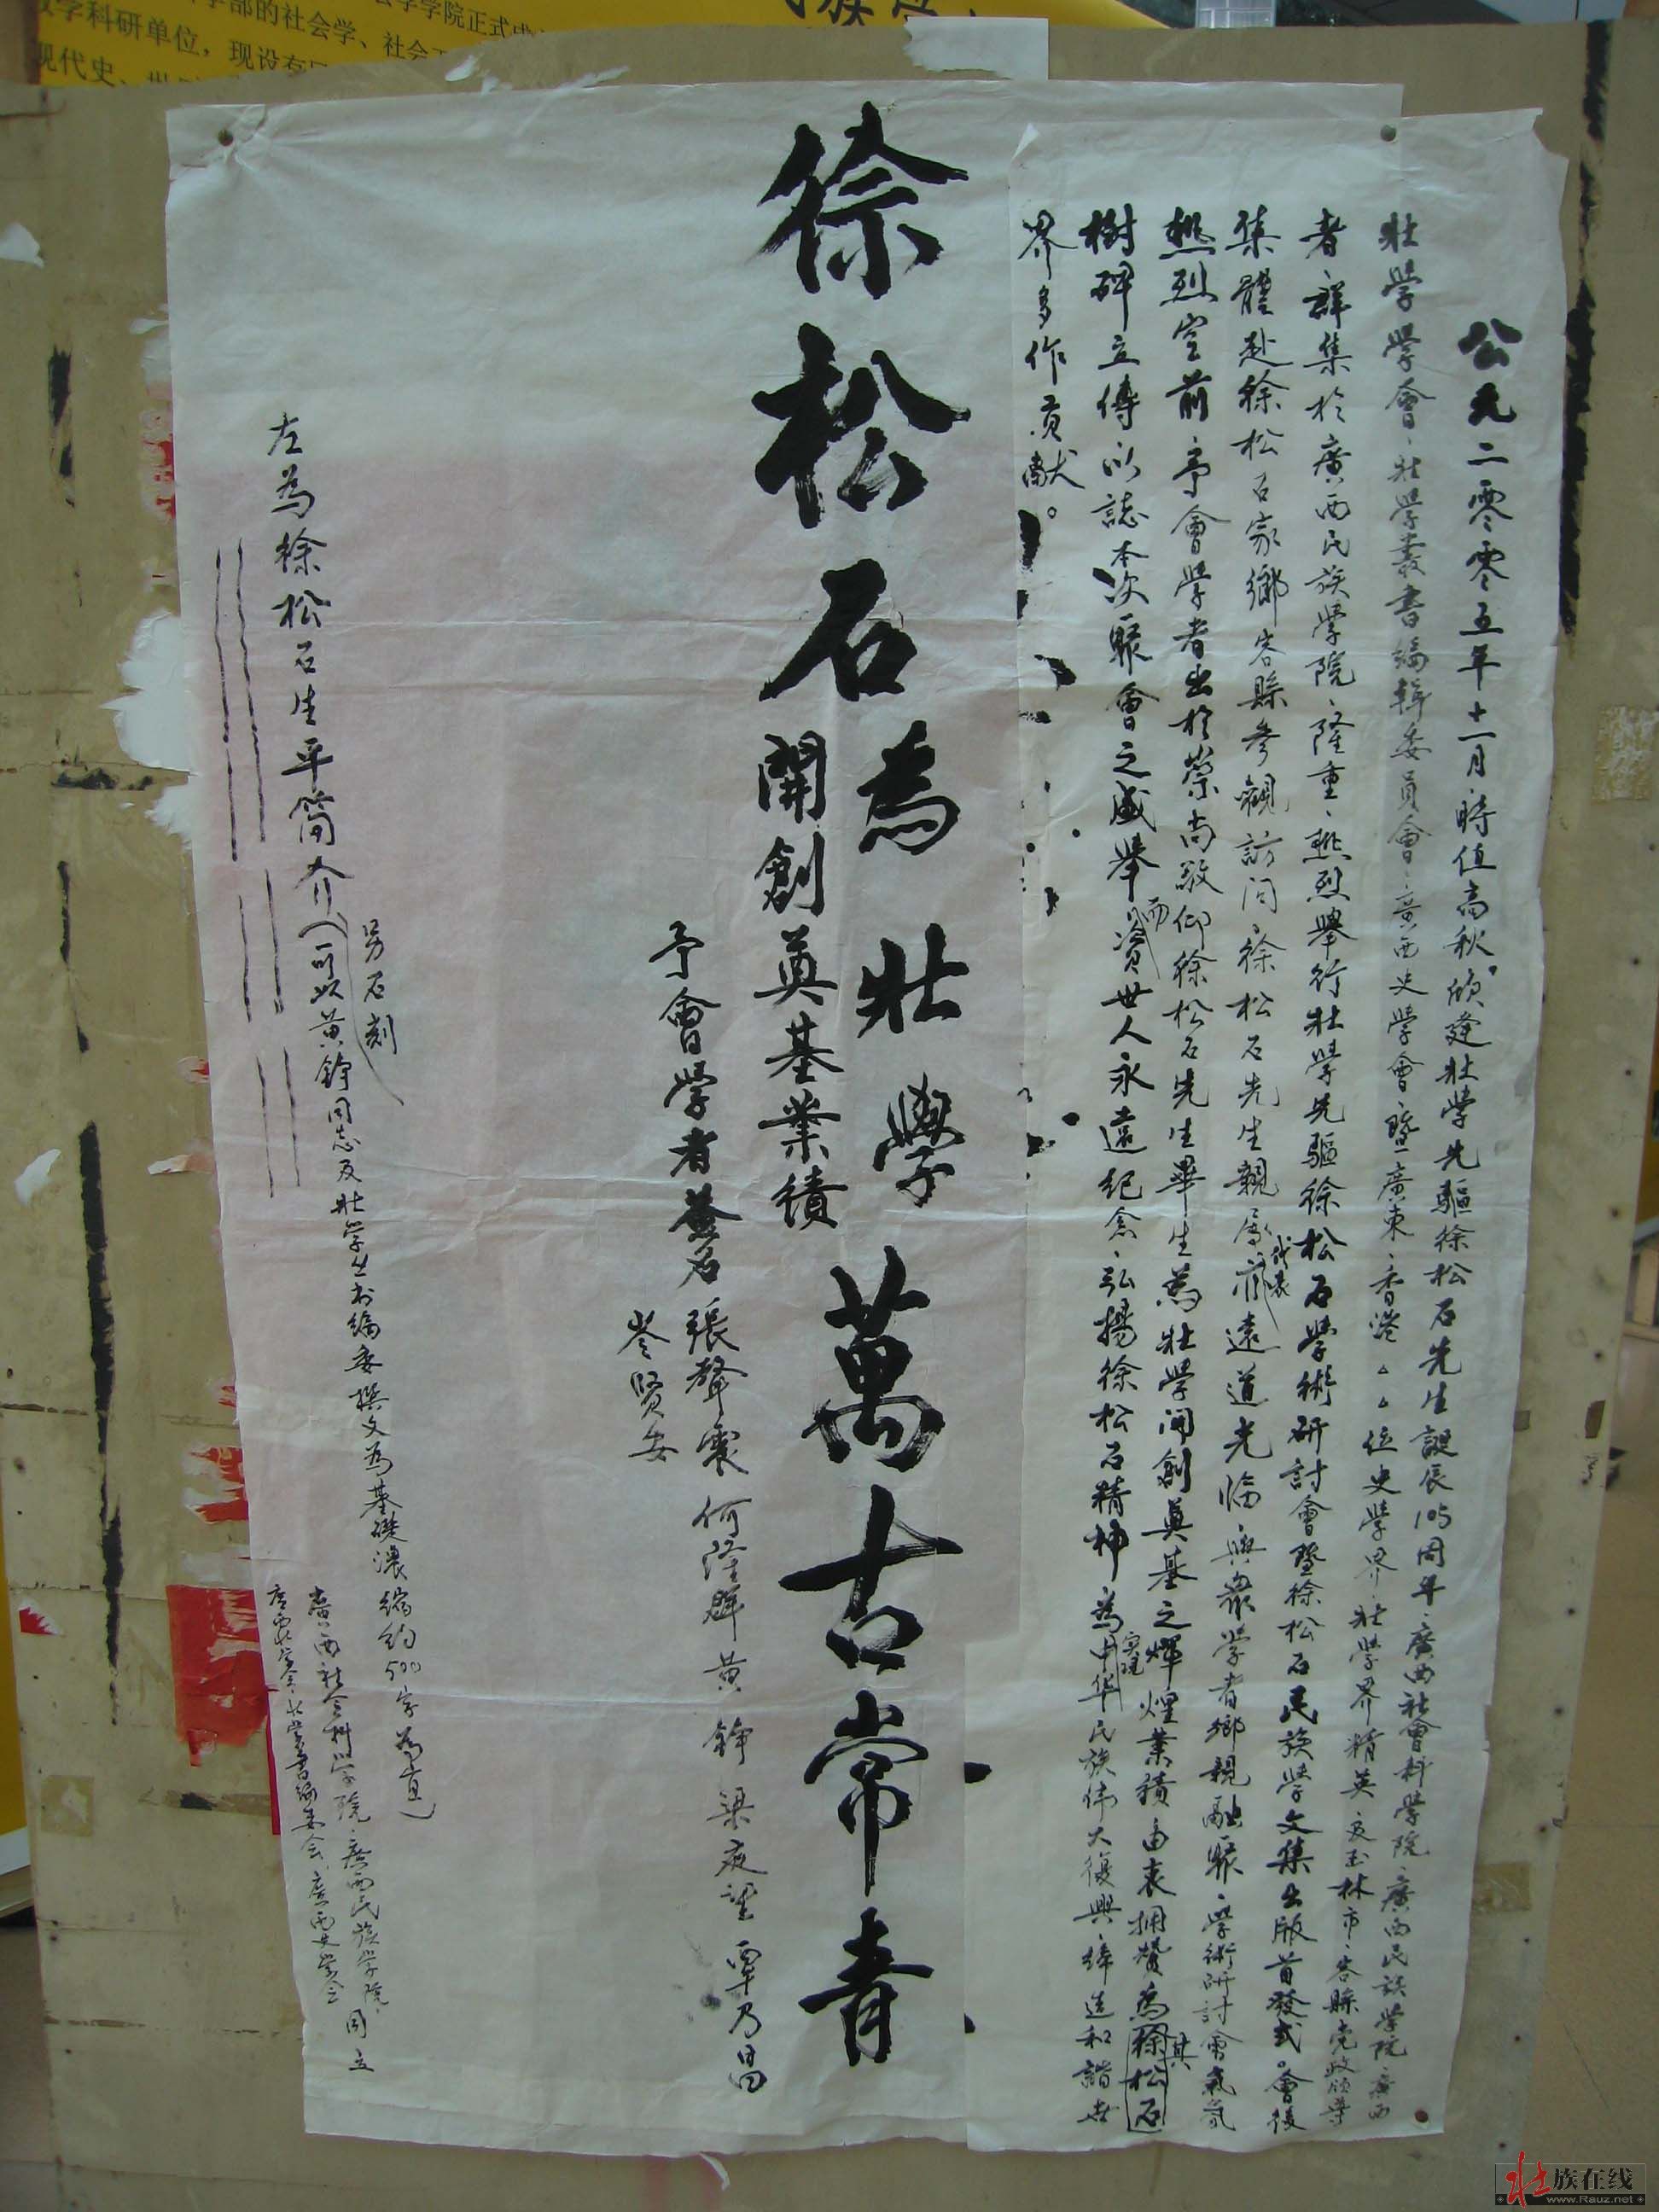 公元二零零五年十一月，時值高秋，欣逢壯學先驅徐松石先生誕辰105周年，廣西社會科學院、廣西民族學院、廣西
壯學學會、壯學叢書編輯委員會、廣西史學會暨廣東、香港△△位史學界、壯學界精英及玉林市、容縣党政領導
者，群集於廣西民族學院，隆重、熱烈舉行壯學先驅徐松石學術研討會暨徐松石民族學文集出版首發式。會後
集體赴徐松石家鄉容縣參觀訪問，徐松石先生親屬代表亦遠道光臨，與眾學者鄉親融聚，學術研討會氣氛
熱烈空前，予會學者出於崇尚敬仰徐松石先生畢生為壯學開創奠基之輝煌業積，由衷拥贊為徐松石其
樹碑立傳，以誌本次聚會之盛舉，而資世人永遠紀念，弘揚徐松石精神，為實現中华民族偉大復興，締造和諧世
界多作貢献。
徐松石為壯學萬古常青
開創奠基業績
予會學者簽名 張聲震 何隆群 黄錚 梁庭望 覃乃昌
岑贤安
另石刻
左為徐松石生平簡介（可以黄錚同志及壯学丛书編委撰文為基礎濃縮約500字為宜）
廣西社会科学院、廣西民族学院、
同立
廣西壯学学会、壯学丛書編委会、廣西史学会
民族学
学部的社会学、社会
学学院正式成
学科研单位，现设有
现代史、
壮族在线
www.Rauz.net